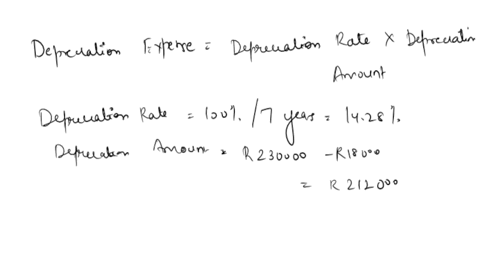 Depreciation Expense = Depreciation Rate × Depreciation
Amount
Depreciation Rate = 100% / 7 years = 14.28%.
Depreciation Amount = R230000 - R18000
= R 212000